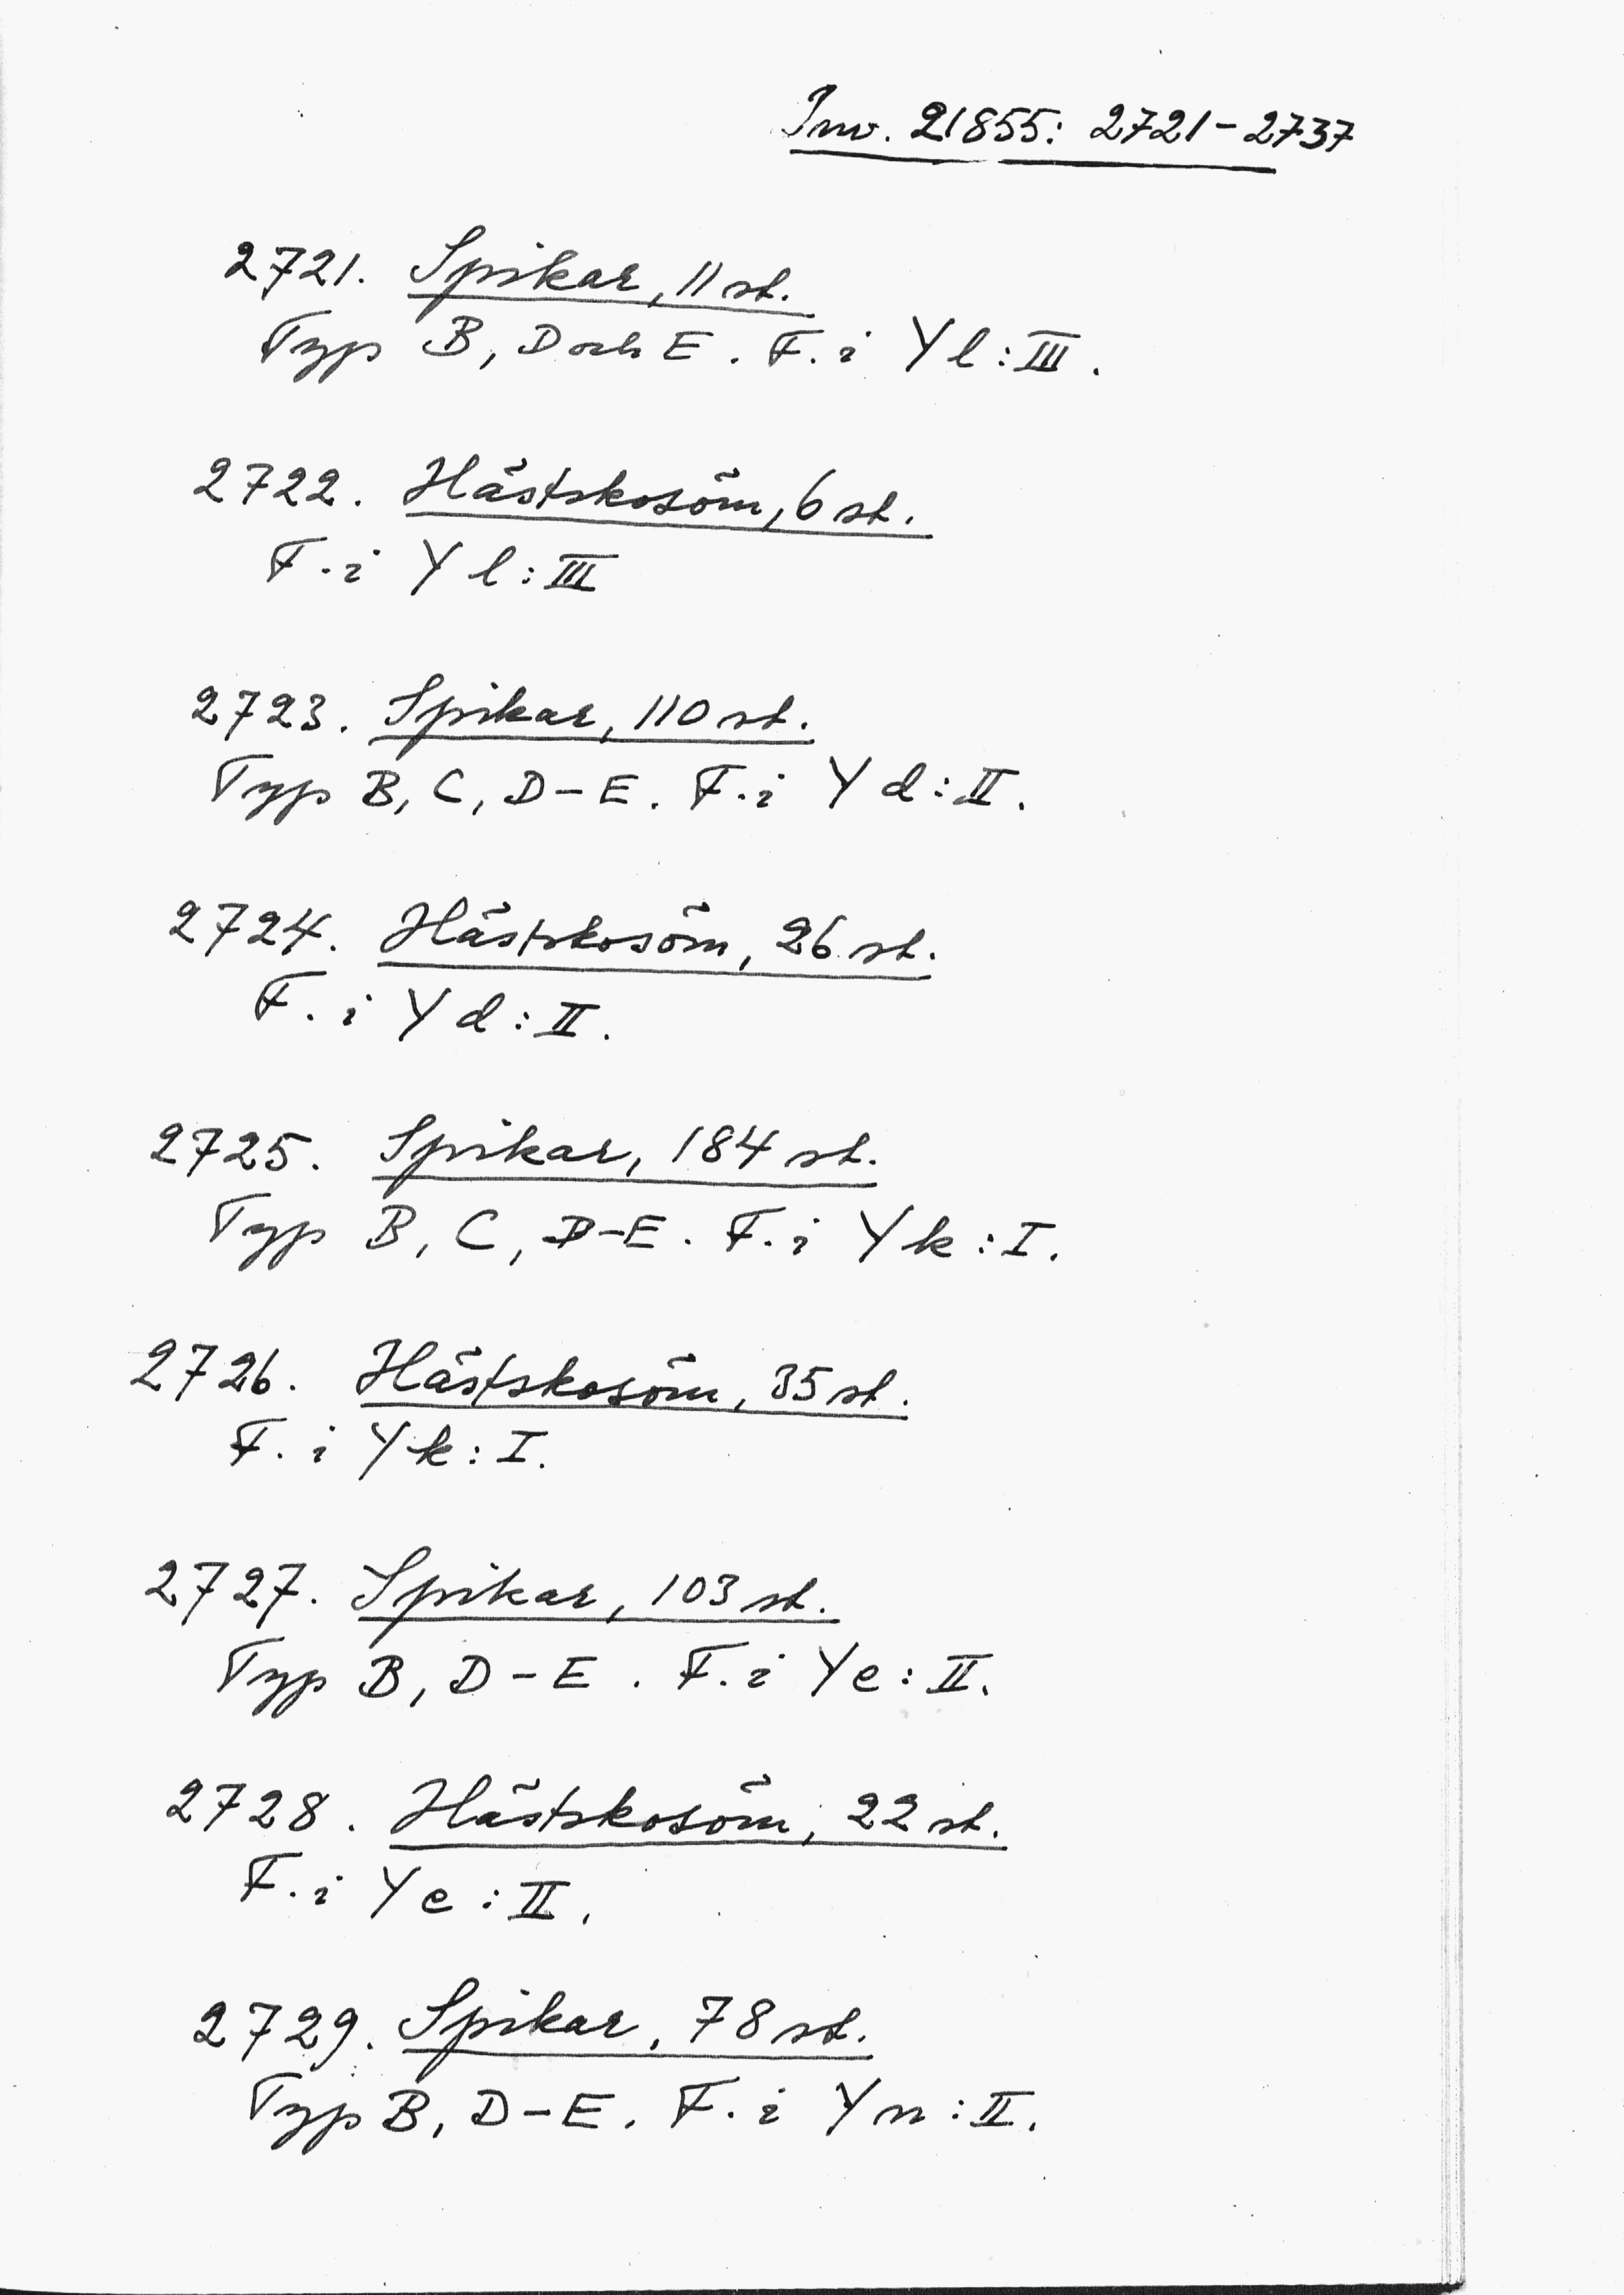 Inv. 21855: 2721-2737
2721. Spikar, 11 st.
Typ B, D och E. F. i Y l : III.
2722. Hästskosöm, 6 st.
F. i Y l : III
2723. Spikar, 110 st.
Typ B, C, D-E. F. i Y d : II.
2724. Hästskosöm, 26 st.
F. i Y d : II.
2725. Spikar, 184 st.
Typ B, C, D-E. F. i Y k : I.
2726. Hästskosöm, 35 st.
F. i Y k : I.
2727. Spikar, 103 st.
Typ B, D-E. F. i Y e : II.
2728. Hästskosöm, 22 st.
F. i Y e : II.
2729. Spikar, 78 st.
Typ B, D-E. F. i Y n : II.